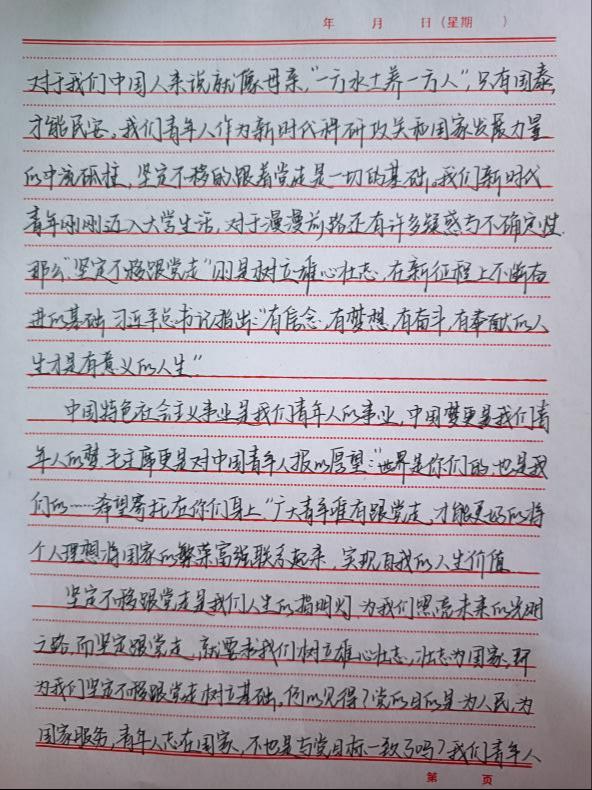 年 月 日(星期 )
对于我们中国人来说就像母亲,"一方水土养一方人",只有国泰,
才能民安。我们青年人作为新时代科研攻关和国家发展力量
的中流砥柱,坚定不移的跟着党走是一切的基础。我们新时代
青年刚刚迈入大学生活,对于漫漫前路还有许多疑惑与不确定性.
那么"坚定不移跟党走"则是树立雄心壮志,在新征程上不断奋
进的基础 习近平总书记指出:"有信念、有梦想、有奋斗、有奉献的人
生才是有意义的人生"
中国特色社会主义事业是我们青年人的事业,中国梦更是我们青
年人的梦 毛主席更是对中国青年人报以厚望:"世界是你们的,也是我
们的……希望寄托在你们身上"广大青年唯有跟党走,才能更好的将
个人理想将国家的繁荣富强联系起来,实现自我的人生价值
坚定不移跟党走是我们人生的指明灯,为我们照亮未来的光明
之路,而坚定跟党走,就要求我们树立雄心壮志,壮志为国家,
为我们坚定不移跟党走树立基础。何以见得?党的目的是为人民,为
国家服务,青年人志在国家,不也是与党目标一致了吗?我们青年人
第 页